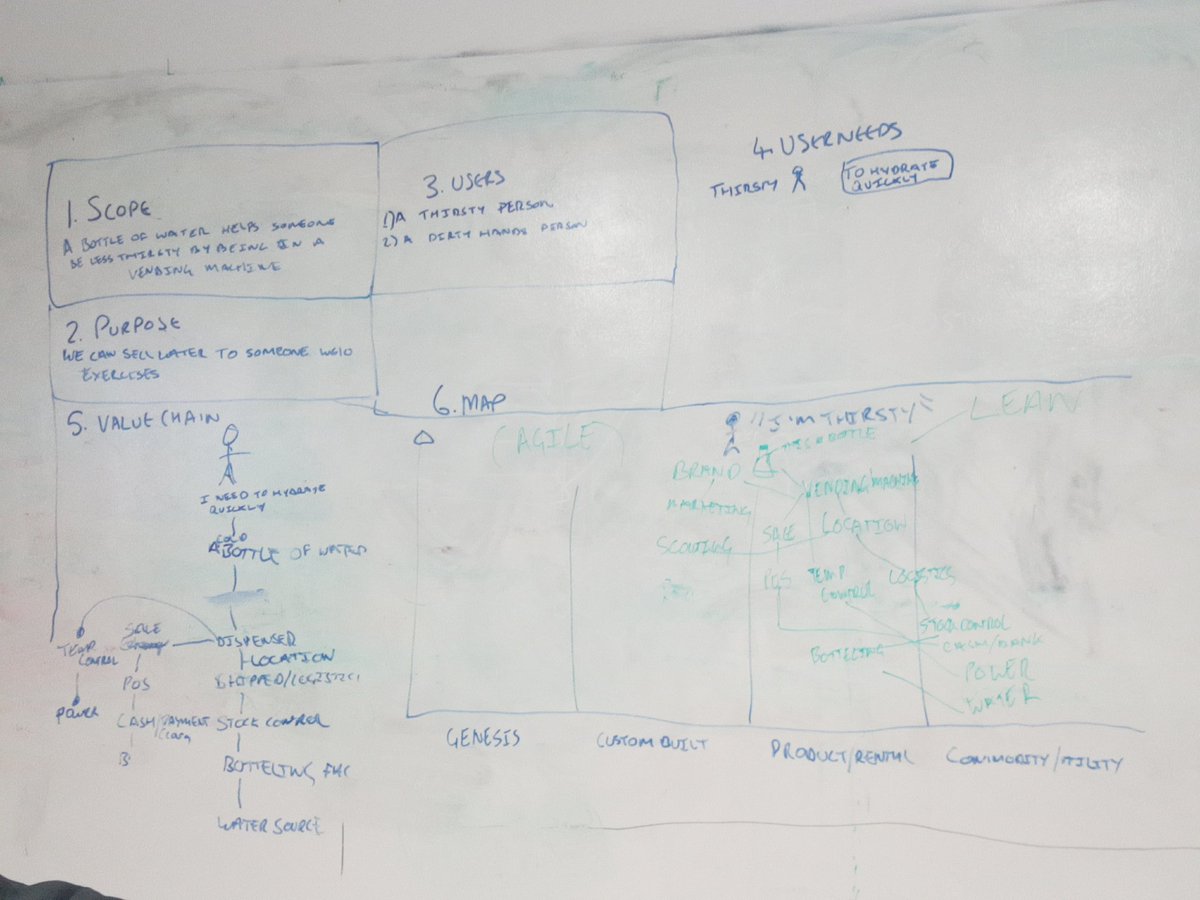 1. SCOPE
A BOTTLE OF WATER HELPS SOMEONE
BE LESS THIRSTY BY BEING IN A
VENDING MACHINE
2. PURPOSE
WE CAN SELL WATER TO SOMEONE WHO
EXERCISES
3. USERS
1) A THIRSTY PERSON
2) A DIRTY HANDS PERSON
4. USER NEEDS
THIRSTY
TO HYDRATE
QUICKLY
5. VALUE CHAIN
I NEED TO HYDRATE
QUICKLY
A COLD
BOTTLE OF WATER
DISPENSER
LOCATION
SHIPPED/LOGISTICS
STOCK CONTROL
BOTTELING
WATER SOURCE
SALE
POS
CASH/PAYMENT
TEMP
CONTROL
POWER
6. MAP
(AGILE)
"I'M THIRSTY"
LEAN
BOTTLE
BRAND
VENDING MACHINE
MARKETING
SALE
LOCATION
SCOUTING
POS
TEMP
CONTROL
LOGISTICS
STOCK CONTROL
CASH/BANK
BOTTELING
POWER
WATER
GENESIS
CUSTOM BUILT
PRODUCT/RENTAL
COMMODITY/UTILITY